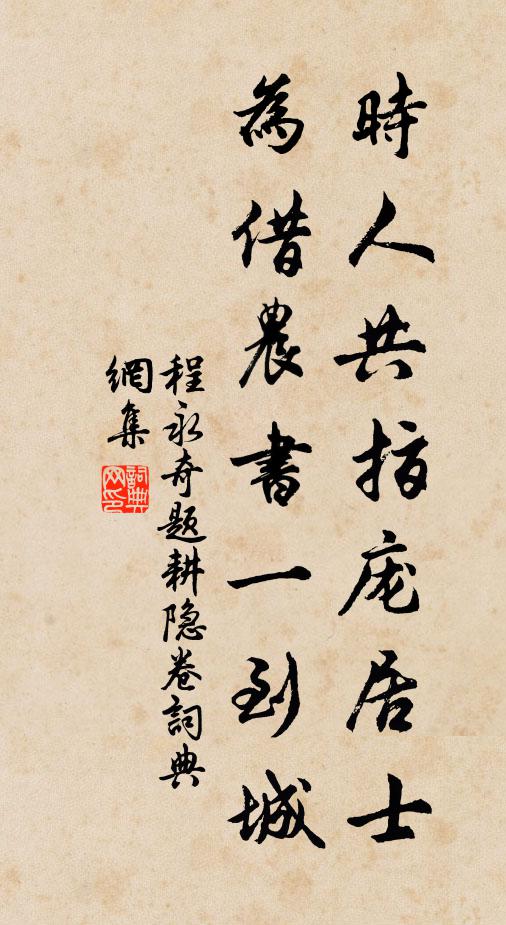 時人共指庞居士
為借農書一到城
程永奇题耕隐卷詞典
網集
詞典網印